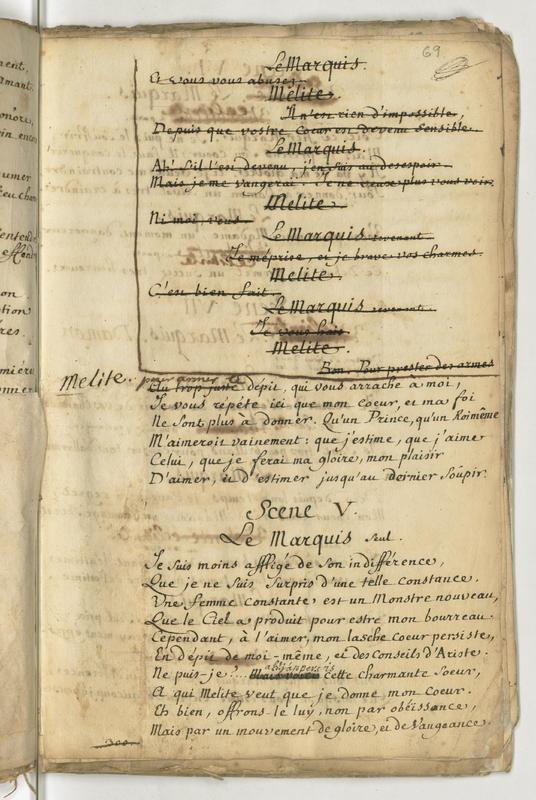 69
Le Marquis.
Et vous vous abusez.
Melite.
Il n'est rien d'impossible,
Depuis que vostre Coeur est devenu Sensible.
Le Marquis.
Ah! S'il l'est devenu, j'en suis au desespoir.
Mais je me vangerai. Je ne veux plus vous voir.
Melite.
Ni moi, vous.
Le Marquis revenant.
Je méprise, et je brave vos charmes.
Melite.
C'est bien fait.
Le Marquis revenant.
Je vous hais.
Melite.
Bon. Pour prester des armes
Melite. pour armer le
Au trop juste dépit, qui vous arrache à moi,
Je vous répéte ici que mon Coeur, et ma foi
Ne sont plus à donner. Qu'un Prince, qu'un Roi même
M'aimeroit vainement: que j'estime, que j'aime
Celui, que je ferai ma gloire, mon plaisir
D'aimer, et d'estimer jusqu'au dernier Soûpir.
Scene V.
Le Marquis seul.
Je suis moins affligé de son indifférence,
Que je ne suis Surpris d'une telle constance.
Vne femme constante est un Monstre nouveau,
Que le Ciel a produit pour estre mon bourreau.
Cependant, à l'aimer, mon lasche Coeur persiste,
En dépit de moi-même, et des conseils d'Ariste.
Ne puis-je?... Mais voici cette charmante Soeur,
A qui Melite veut que je donne mon Coeur.
Eh bien, offrons le luy, non par obéissance,
Mais par un mouvement de gloire, et de Vangeance.